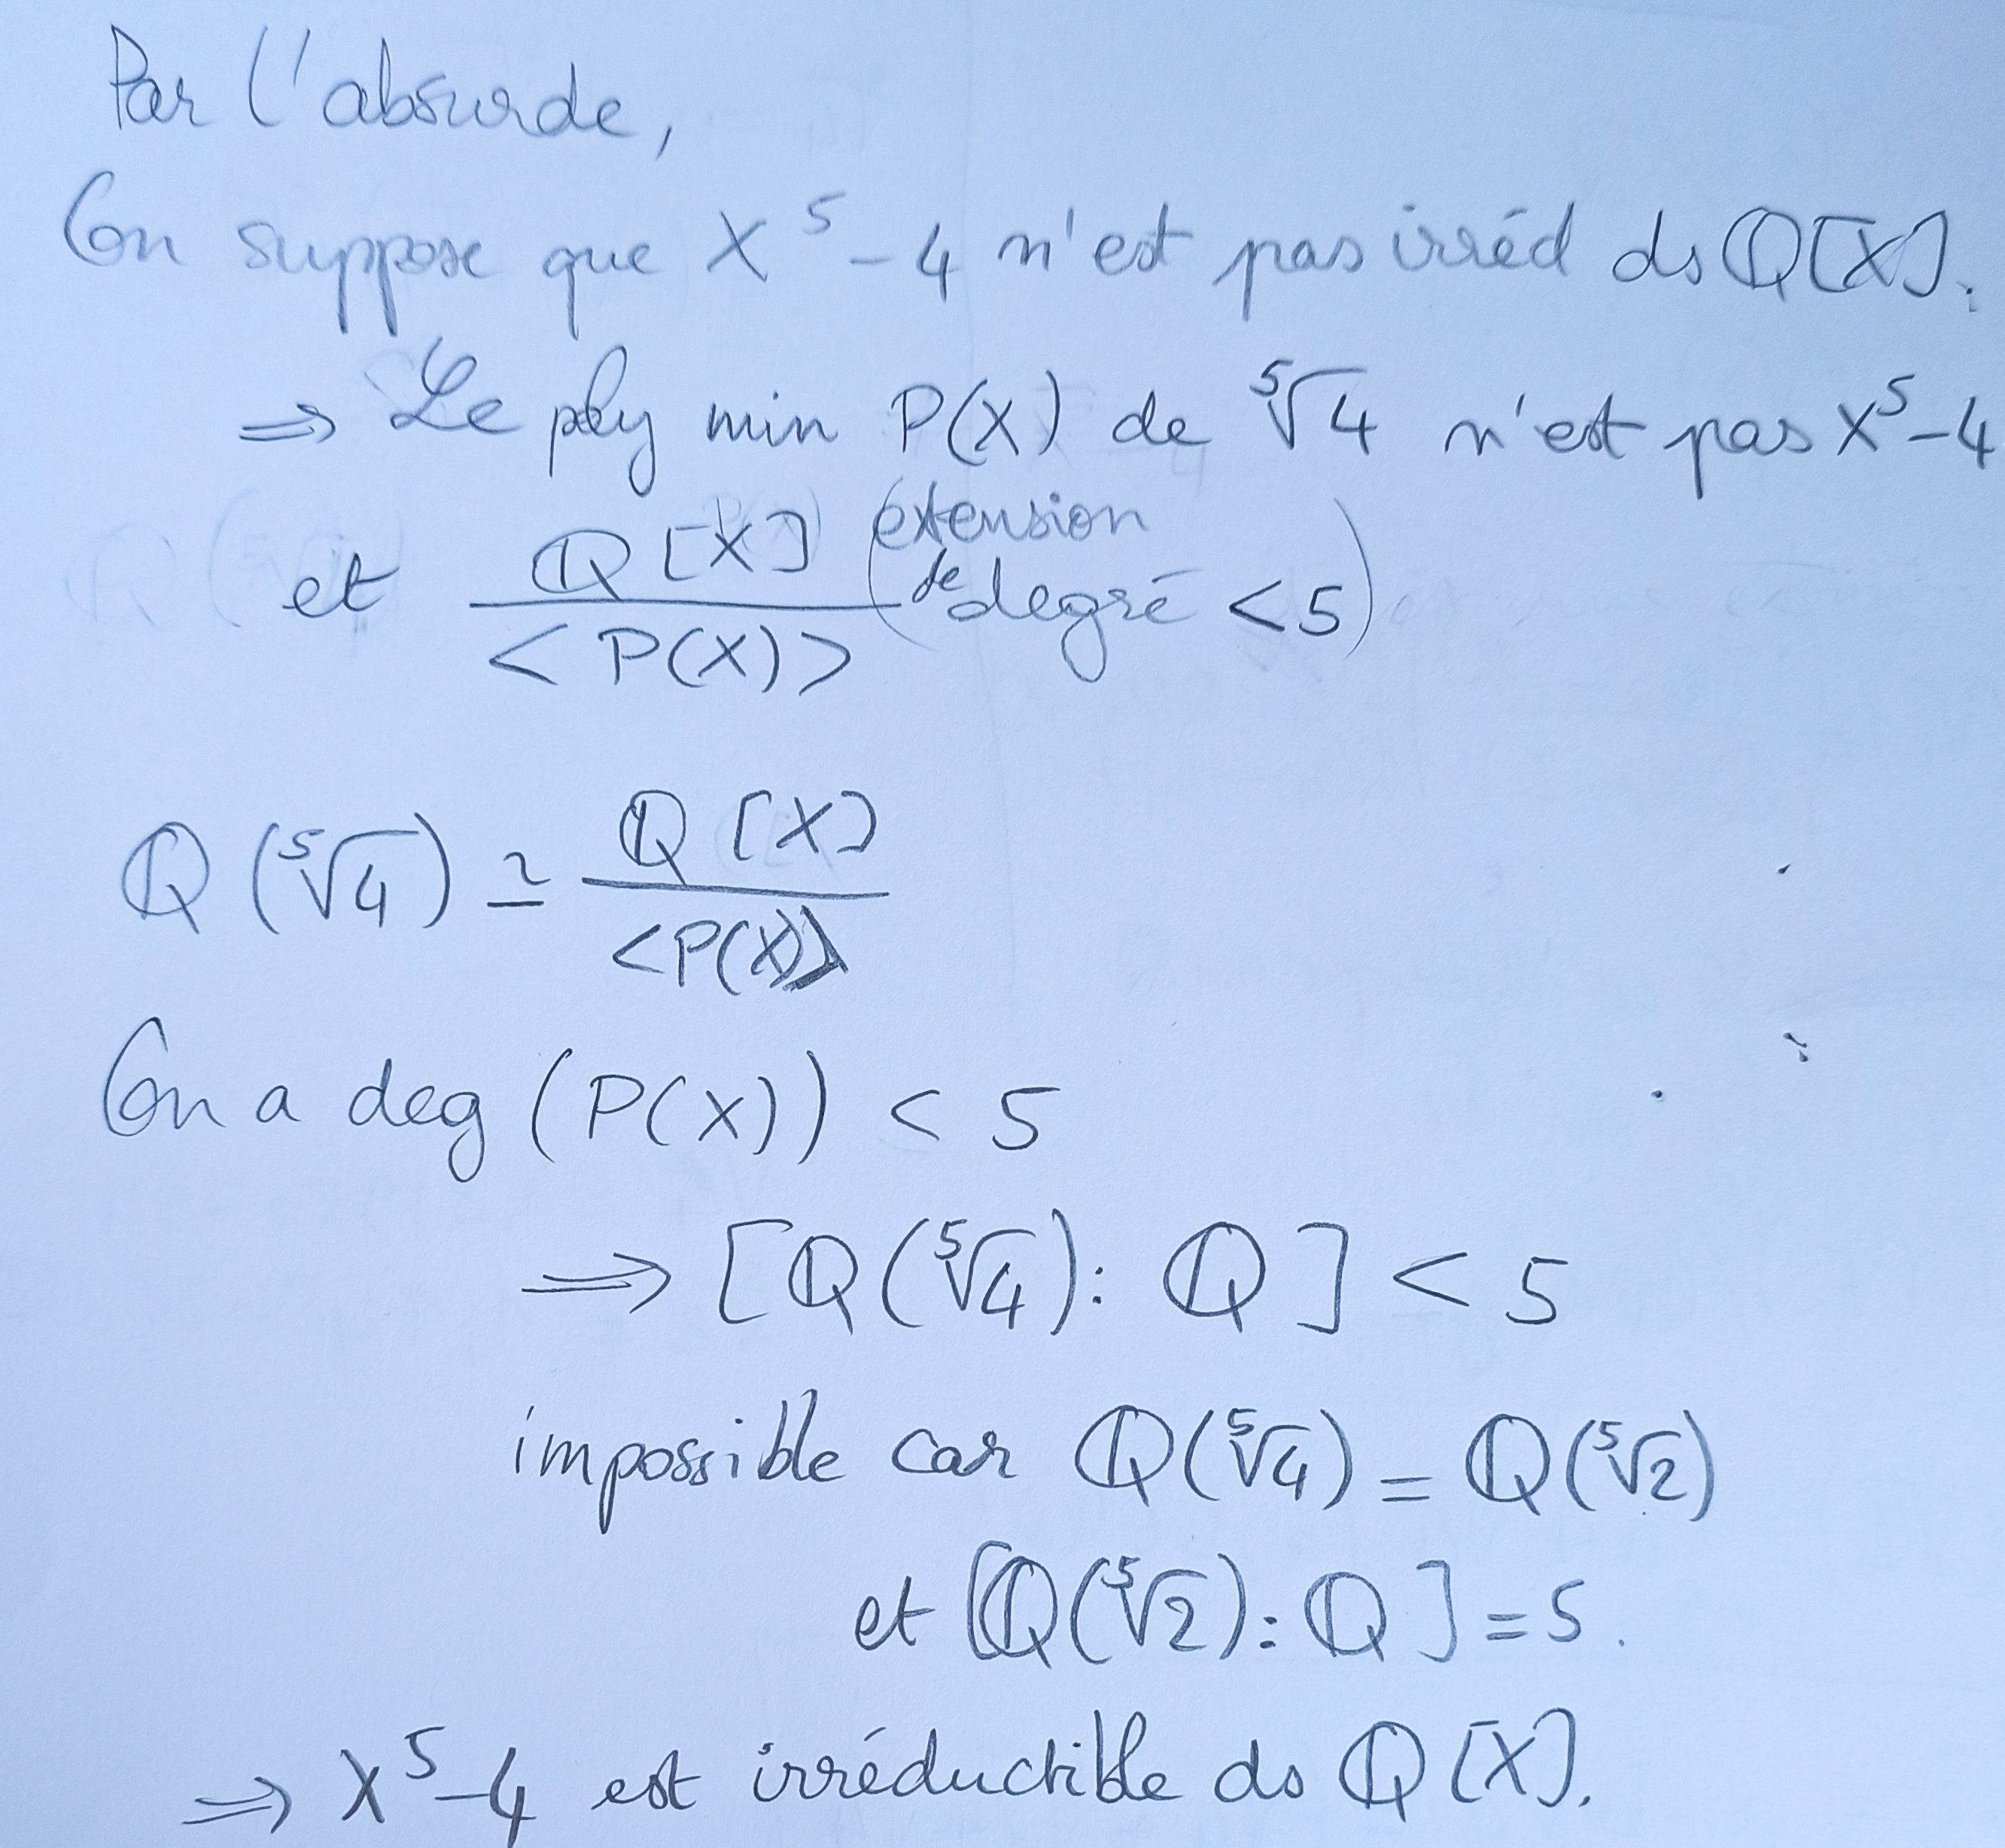 Par l'absurde,
On suppose que X⁵ - 4 n'est pas irréd ds ℚ[X].
⇒ Le ply min P(X) de ⁵√4 n'est pas X⁵-4
et ℚ[X] / <P(X)> (extension de degré < 5)
ℚ(⁵√4) ≃ ℚ[X] / <P(X)>
On a deg (P(X)) < 5
⇒ [ℚ(⁵√4) : ℚ] < 5
impossible car ℚ(⁵√4) = ℚ(⁵√2)
et [ℚ(⁵√2) : ℚ] = 5.
⇒ X⁵-4 est irréductible ds ℚ[X].